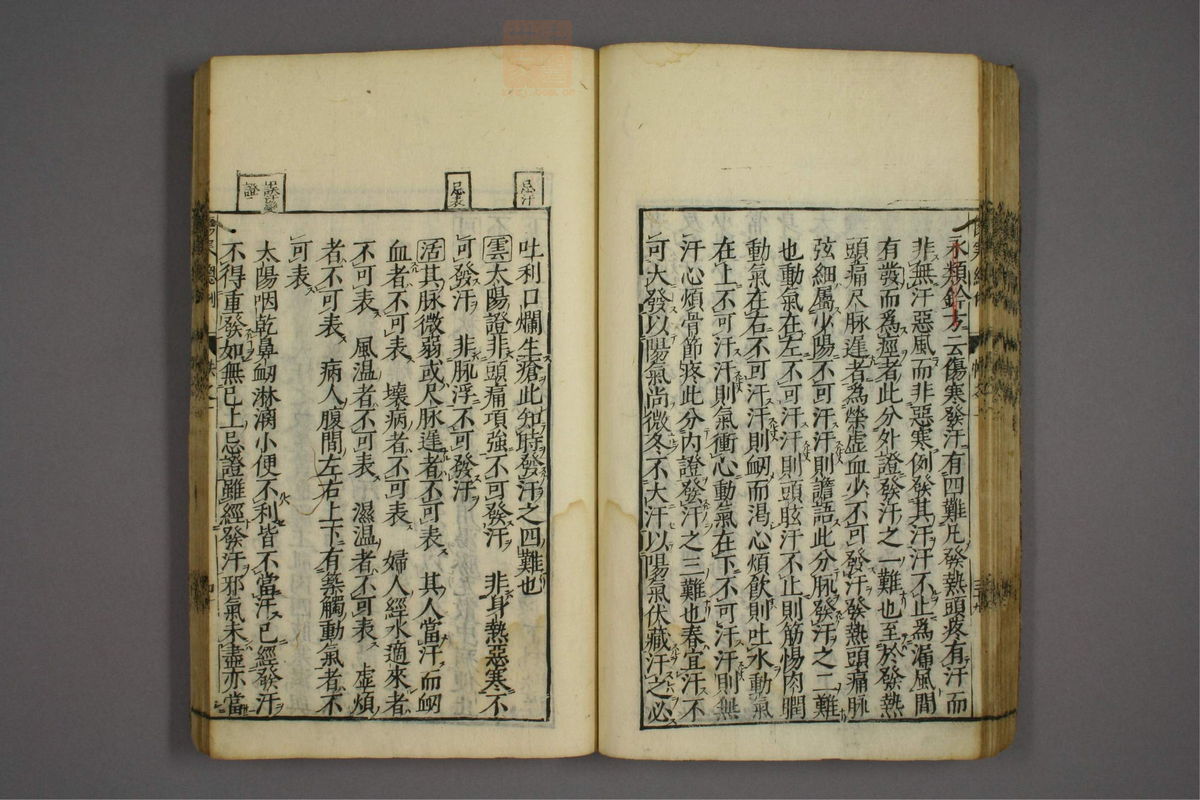 永類鈐方云傷寒發汗有四難凡發熱頭疼有汗而
非無汗惡風而非惡寒例發其汗汗不止為漏風間
有發而為痙者此分外證發汗之一難也至於發熱
頭痛尺脉遲者為榮虛血少不可發汗發熱頭痛脉
弦細屬少陽不可汗汗則譫語此分脉發汗之二難
也動氣在左不可汗汗則頭眩汗不止則筋惕肉瞤
動氣在右不可汗汗則衂而渴心煩飲則吐水動氣
在上不可汗汗則氣衝心動氣在下不可汗汗則無
汗心煩骨節疼此分内證發汗之三難也春宜汗不
可大發以陽氣尚微冬不大汗以陽氣伏藏汗之必
吐利口爛生瘡此知時發汗之四難也
雲太陽證非頭痛項強不可發汗 非身熱惡寒不
可發汗 非脉浮不可發汗
活其脉微弱或尺脉遲者不可表 其人當汗而衂
血者不可表 壞病者不可表 婦人經水適來者
不可表 風温者不可表 濕温者不可表 虛煩
者不可表 病人腹間左右上下有築觸動氣者不
可表
太陽咽乾鼻衂淋漓小便不利皆不當汗已經發汗
不得重發如無已上忌證雖經發汗邪氣未盡亦當
忌汗
忌表
誤汗變
證